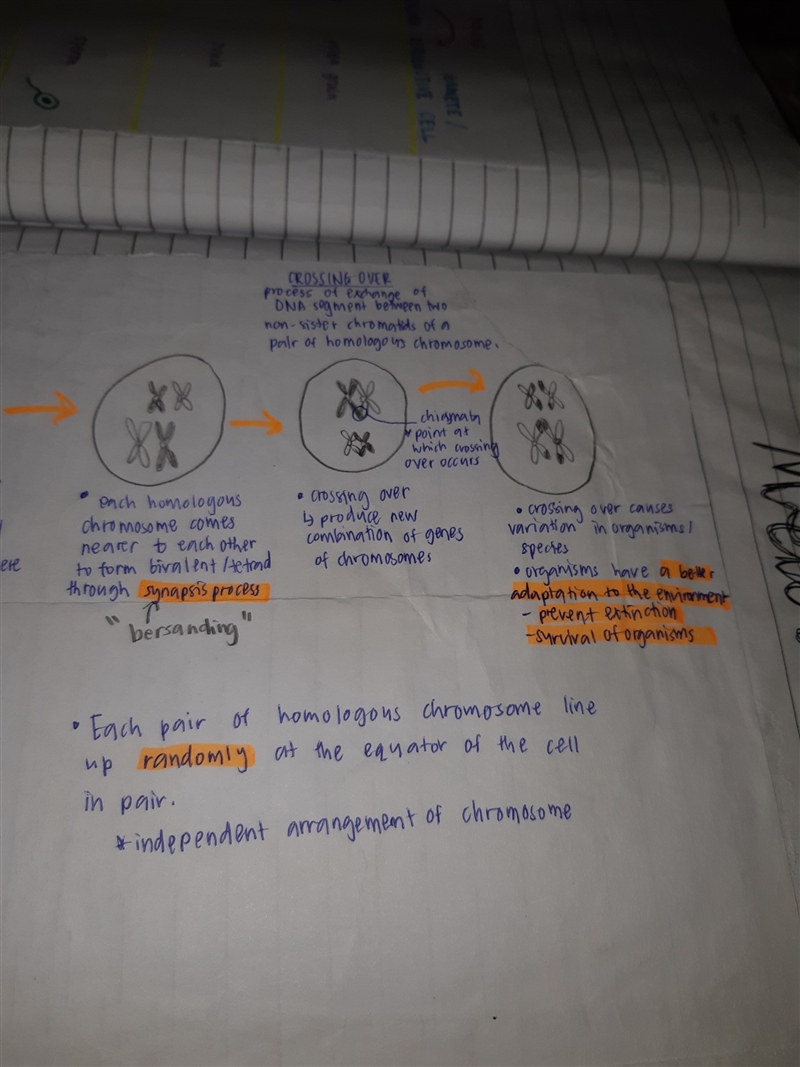 GAMETE /
REPRODUCTIVE CELL
CROSSING OVER
process of exchange of
DNA segment between two
non-sister chromatids of a
pair of homologous chromosome.
chiasmata
* point at
which crossing
over occurs
• each homologous
chromosome comes
nearer to each other
to form bivalent/tetrad
through synapsis process
"bersanding"
• crossing over
↳ produce new
combination of genes
of chromosomes
• crossing over causes
variation in organisms/
species
• organisms have a better
adaptation to the environment
- prevent extinction
- survival of organisms
ere
• Each pair of homologous chromosome line
up randomly at the equator of the cell
in pair.
* independent arrangement of chromosome